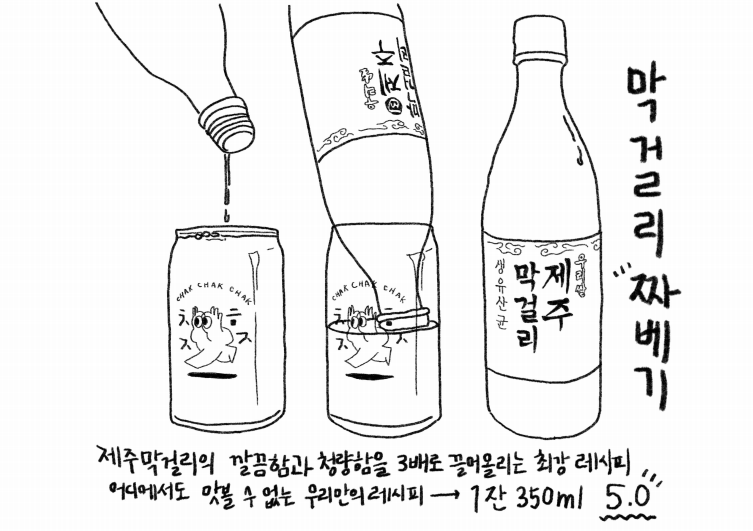 막걸리 짜베기
우리쌀
제주
막걸리
생유산균
CHAK CHAK CHAK
CHAK CHAK CHAK
제주막걸리의 깔끔함과 청량함을 3배로 끌어올리는 최강 레시피
어디에서도 맛볼 수 없는 우리만의 레시피 → 1잔 350ml 5.0